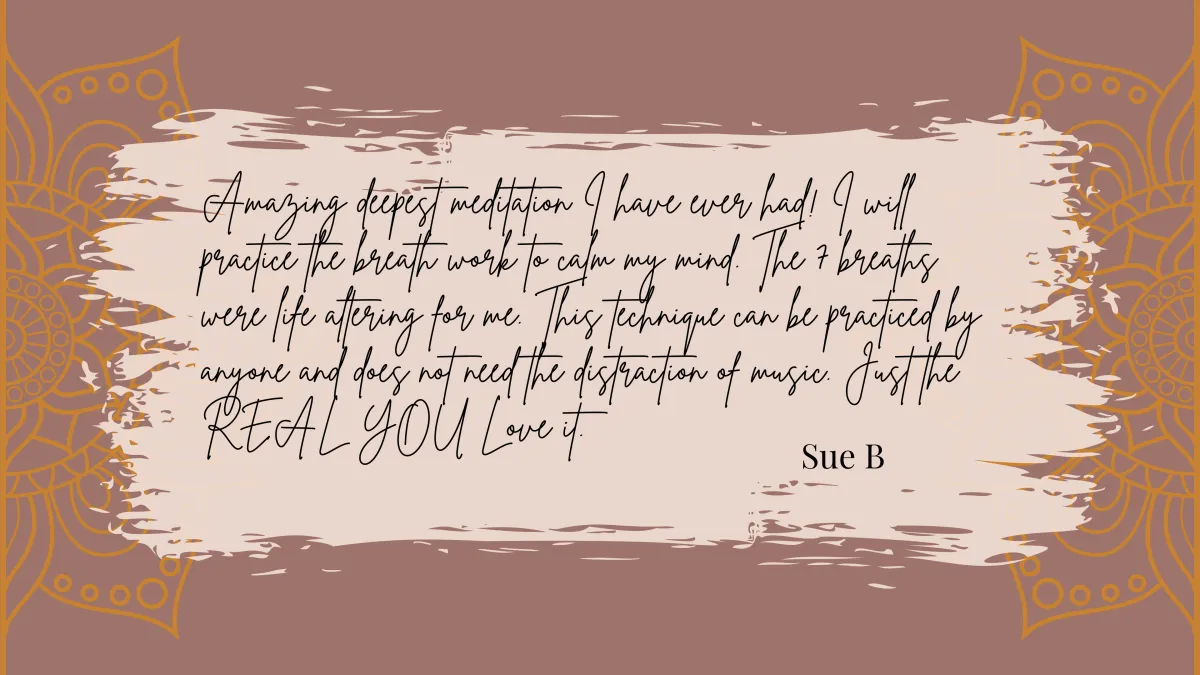 Amazing deepest meditation I have ever had! I will
practice the breath work to calm my mind. The 7 breaths
were life altering for me. This technique can be practiced by
anyone and does not need the distraction of music. Just the
REAL YOU Love it.
Sue B